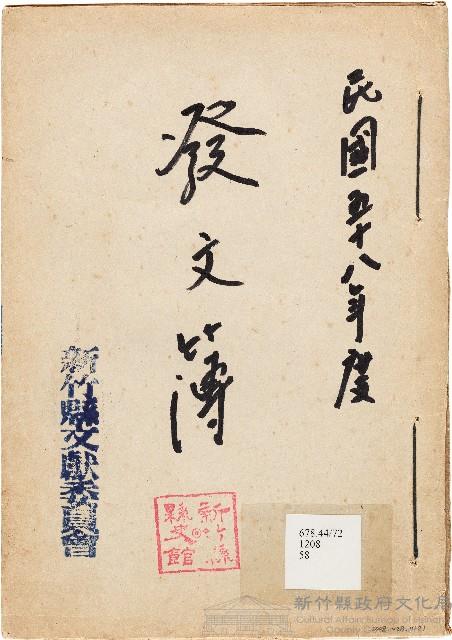 民國五十八年度
發文簿
新竹縣文獻委員會
新竹縣
縣史館
678.44/72
1208
58
新竹縣政府文化局
Cultural Affairs Bureau of Hsinchu
County Government